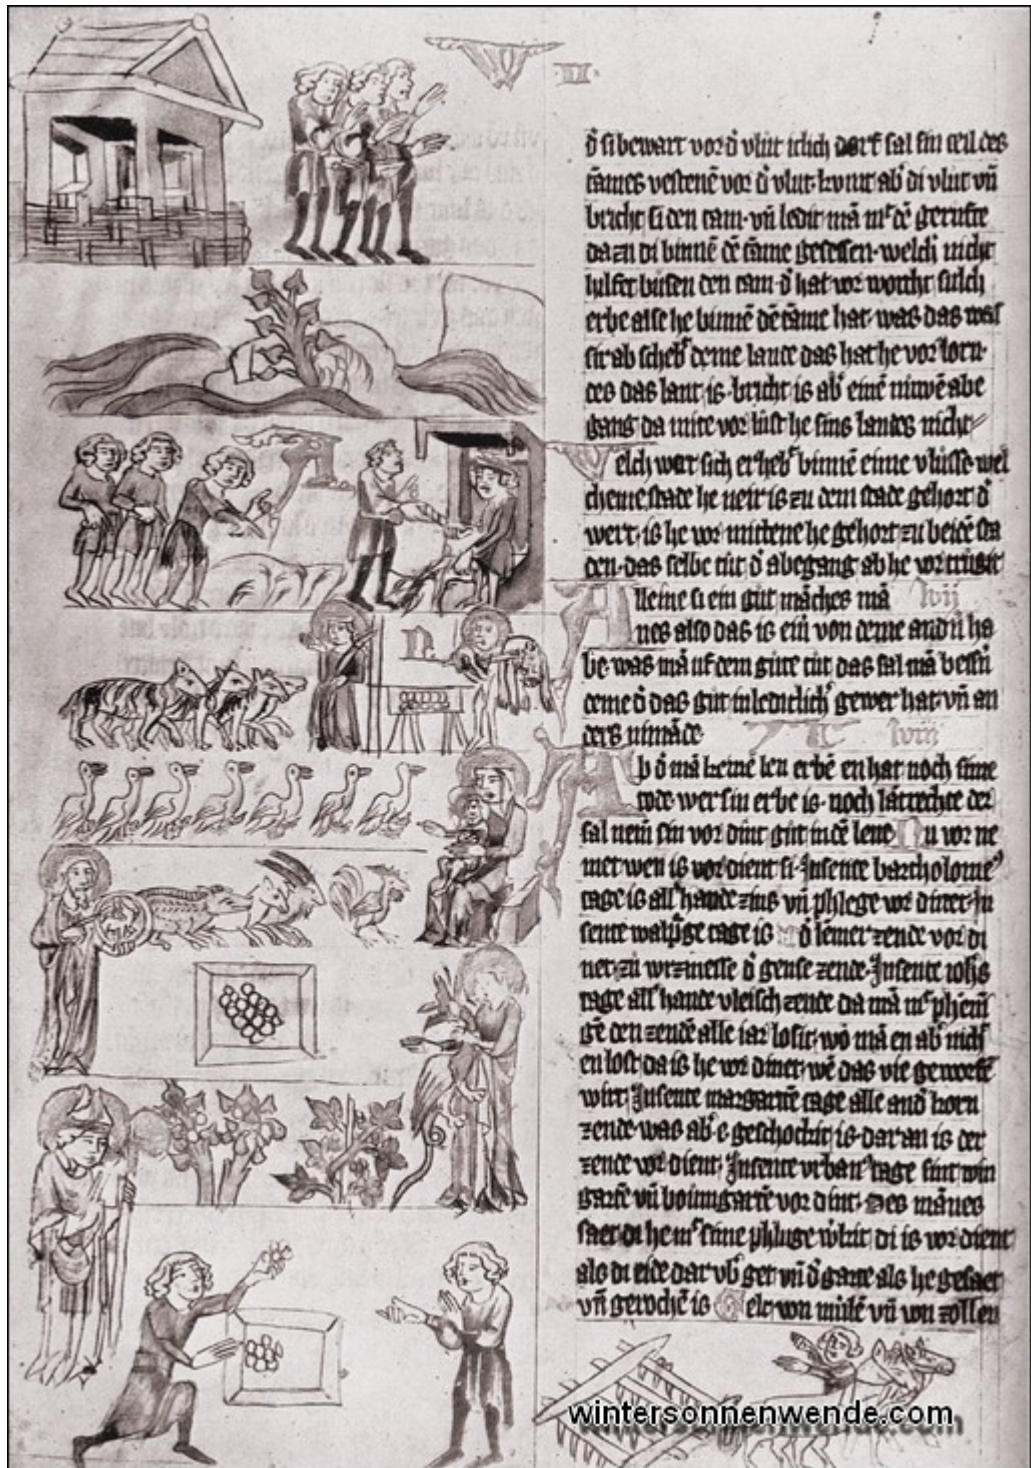 d si bewart vor d vlut iclich dorf sal sin teil des
tāmes vestenē vor d vlut kvmt ab di vlut vn
bricht si den tam vn ledit mā mit dē gerufte
da zu di binnē dē tāme gesessen welch nicht
hilfet busen den tam d hat vor worcht sulch
erbe alse he binnē dē tāme hat was das wasser
sir ab schebt deme lande das hat he vor lorn
des das lant is bricht is ab einē nuwē abe
gang da mite vor lust he sins landes nicht
Welch wert sich erhebt binnē eime vlusse wel
cheme stade he neir is zu dem stade gehort d
wert is he vor mittene he gehort zu beidē sta
den das selbe tut d abegang ab he vor truget
Alleine si ein gut māches mā lvij
nes also das is ein von deme andn ha
be was mā uf dem gute tut das sal mā bessn
deme d das gut in ledichlich gewer hat vn an
ders nimāde lviij
Ab d mā keine len erbē en hat noch sime
tode wer sin erbe is noch lātrechte der
sal nem sin vor dint gut in dē lene Nu vor ne
met wen is vordient si In sente bartholome9
tage is allhande zins vn phlege vor dinet In
sente walpge tage is d lemer zende vor di
net zu wrzmesse d gense zende In sente iohs
tage allhande vleisch zende da mā mit phēni
gē den zendē alle iar losit wo mā en ab nicht
en lost da is he vor dinet wē das vie geworfē
wirt In sente margartē tage alle and korn
zende was ab e geschockit is dar an is der
zende vor dient In sente vrban9 tage sint win
gartē vn boumgartē vor dint Des mānes
saet di he mit sime phluge wirkt di is vor dient
als di eide dar vb get vn d garte als he gesaet
vn gerochē is Gelt von mulē vn von zollen
wintersonnenwende.com